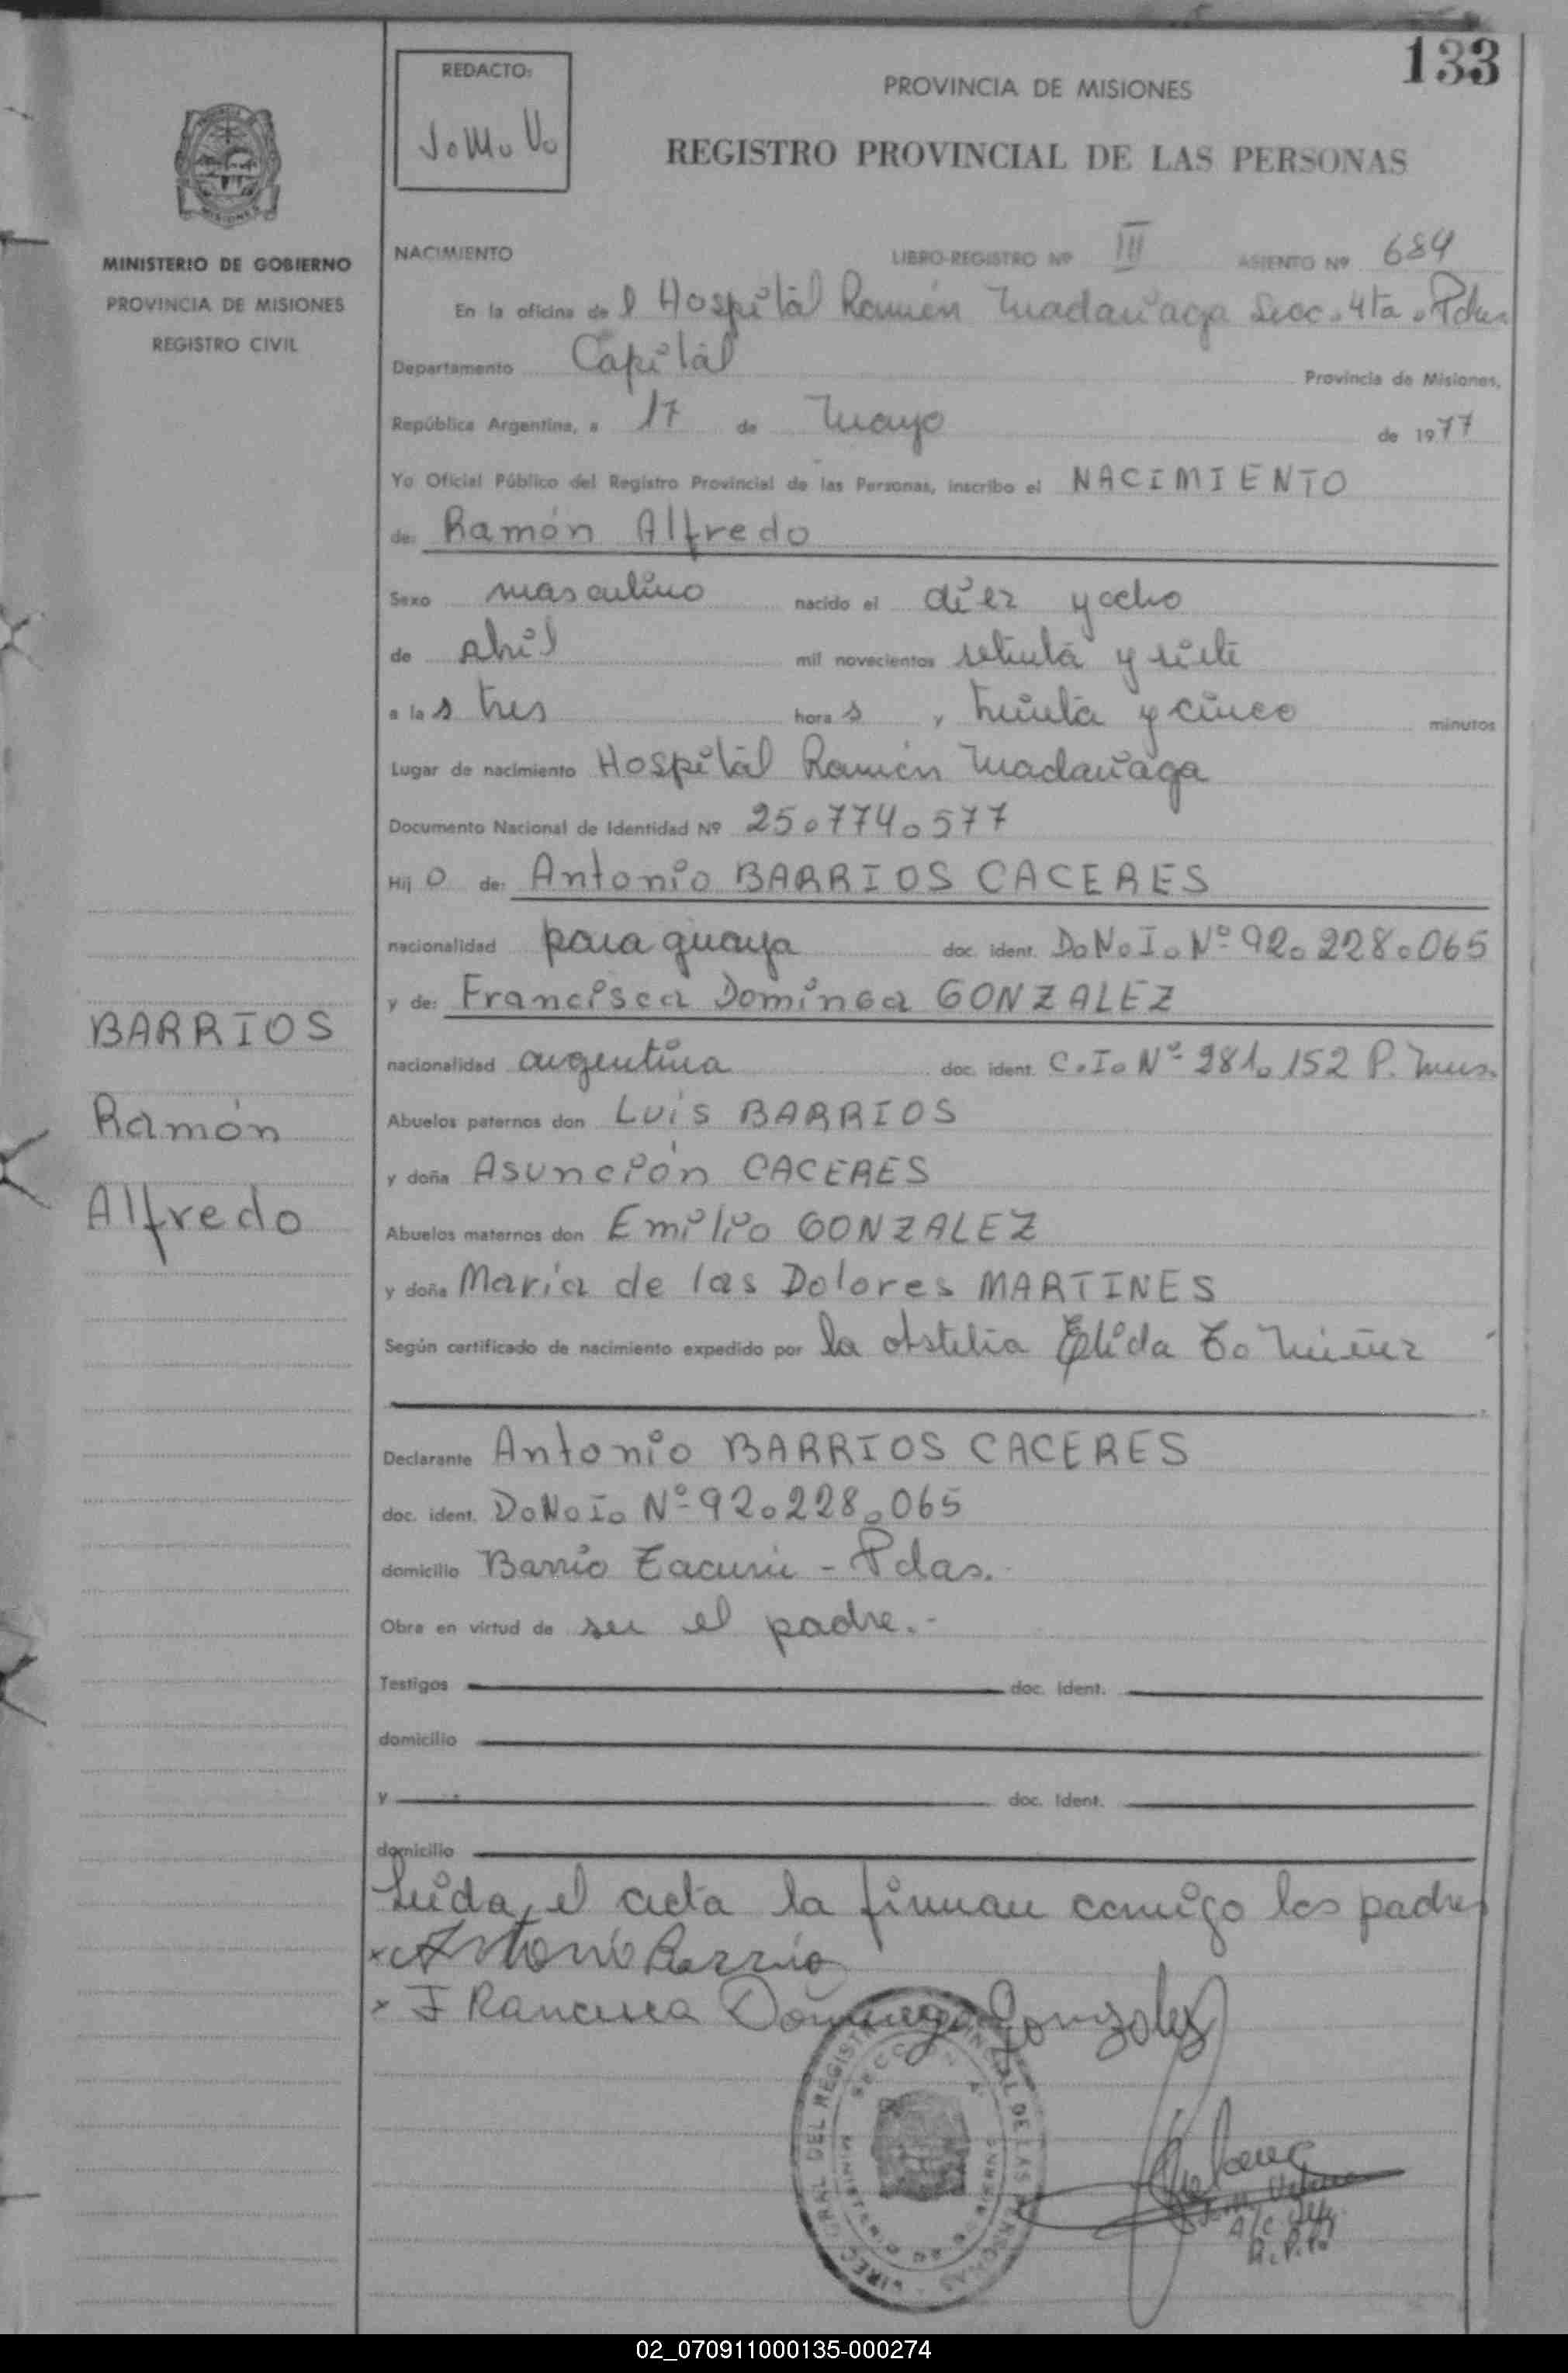 133
REDACTO:
J.M.V.
PROVINCIA DE MISIONES
REGISTRO PROVINCIAL DE LAS PERSONAS
MINISTERIO DE GOBIERNO
PROVINCIA DE MISIONES
REGISTRO CIVIL
NACIMIENTO LIBRO-REGISTRO Nº III ASIENTO Nº 684
En la oficina del Hospital Ramón Madariaga Secc. 4ta. Pdas
Departamento Capital Provincia de Misiones,
República Argentina, a 17 de Mayo de 1977
Yo Oficial Público del Registro Provincial de las Personas, inscribo el NACIMIENTO
de: Ramón Alfredo
Sexo masculino nacido el diez y ocho
de abril mil novecientos setenta y siete
a las tres horas y treinta y cinco minutos
Lugar de nacimiento Hospital Ramón Madariaga
Documento Nacional de Identidad Nº 25.774.577
Hijo de: Antonio BARRIOS CACERES
nacionalidad paraguaya doc. ident. D.N.I. Nº 92.228.065
y de: Francisca Dominga GONZALEZ
nacionalidad argentina doc. ident. C.I. Nº 281.152 P. Mnes.
Abuelos paternos don Luis BARRIOS
y doña Asunción CACERES
Abuelos maternos don Emilio GONZALEZ
y doña María de las Dolores MARTINES
Según certificado de nacimiento expedido por la obstetria Elida
Declarante Antonio BARRIOS CACERES
doc. ident. D.N.I. Nº 92.228.065
domicilio Barrio Tacurú - Pdas.
Obra en virtud de ser el padre.-
Testigos doc. ident.
domicilio
y doc. ident.
domicilio
Leida, el acta la firman comigo los padres
x Antonio Barrio
x FRancisca Dominga Gonzalez
BARRIOS
Ramón
Alfredo
02_070911000135-000274